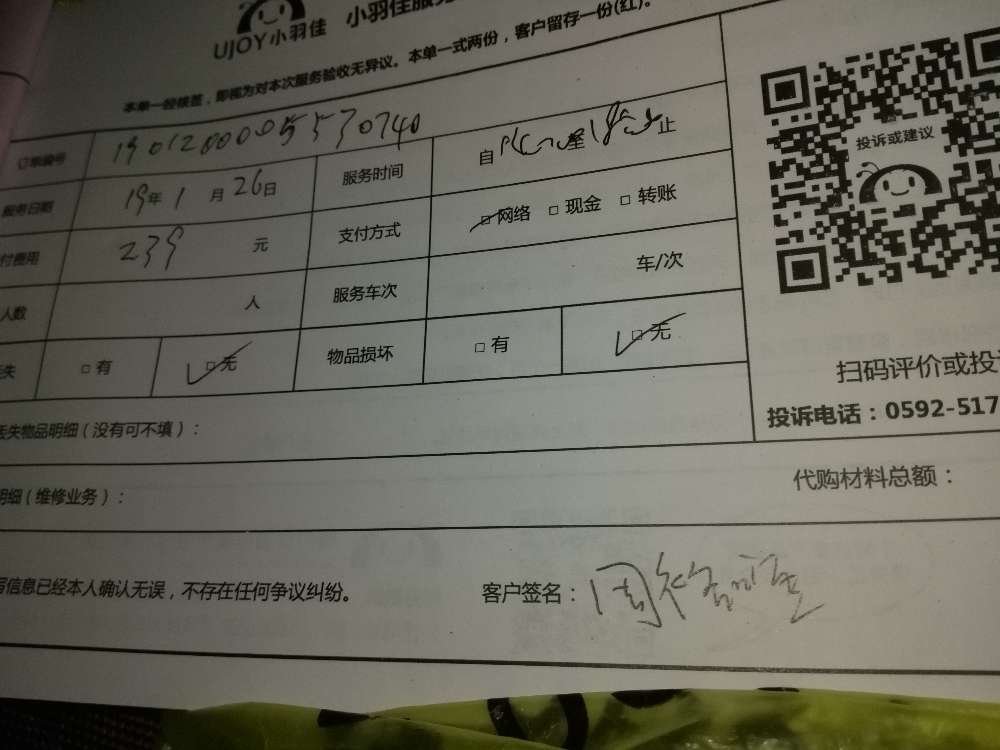 UJOY小羽佳 小羽佳服务
本单一经核签，即视为对本次服务验收无异议。本单一式两份，客户留存一份(红)。
订单编号 1901200005530740
服务日期 19年1月26日 服务时间 自 至 止
付费用 239 元 支付方式 □网络 □现金 □转账
人数 人 服务车次 车/次
失 □有 □无 物品损坏 □有 □无
投诉或建议
扫码评价或投
投诉电话：0592-517
丢失物品明细（没有可不填）：
明细（维修业务）： 代购材料总额：
写信息已经本人确认无误，不存在任何争议纠纷。 客户签名：周